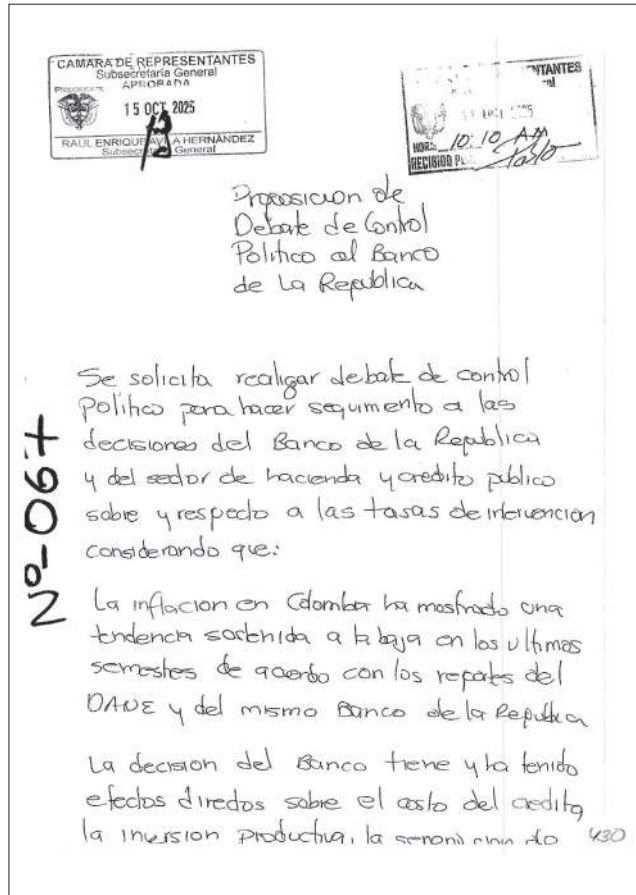 CAMARA DE REPRESENTANTES
Subsecretaría General
APROBADA
15 OCT 2025
RAUL ENRIQUE AVILA HERNÁNDEZ
Subsecretario General
NTANTES
HORA: 10:10 AM
RECIBIDO
Proposicion de
Debate de Control
Politico al Banco
de La Republica
Nº-067
Se solicita realizar debate de control
Politico para hacer seguimento a las
decisiones del Banco de la Republica
y del sector de hacienda y credito publico
sobre y respecto a las tasas de intervencion
considerando que:
La inflacion en Colombia ha mostrado una
tendencia sostenida a la baja en los ultimos
semestres de acuerdo con los repotes del
DANE y del mismo Banco de la Republica
La decision del Banco tiene y ha tenido
efectos directos sobre el costo del credito,
la inversion productiva, la de
430